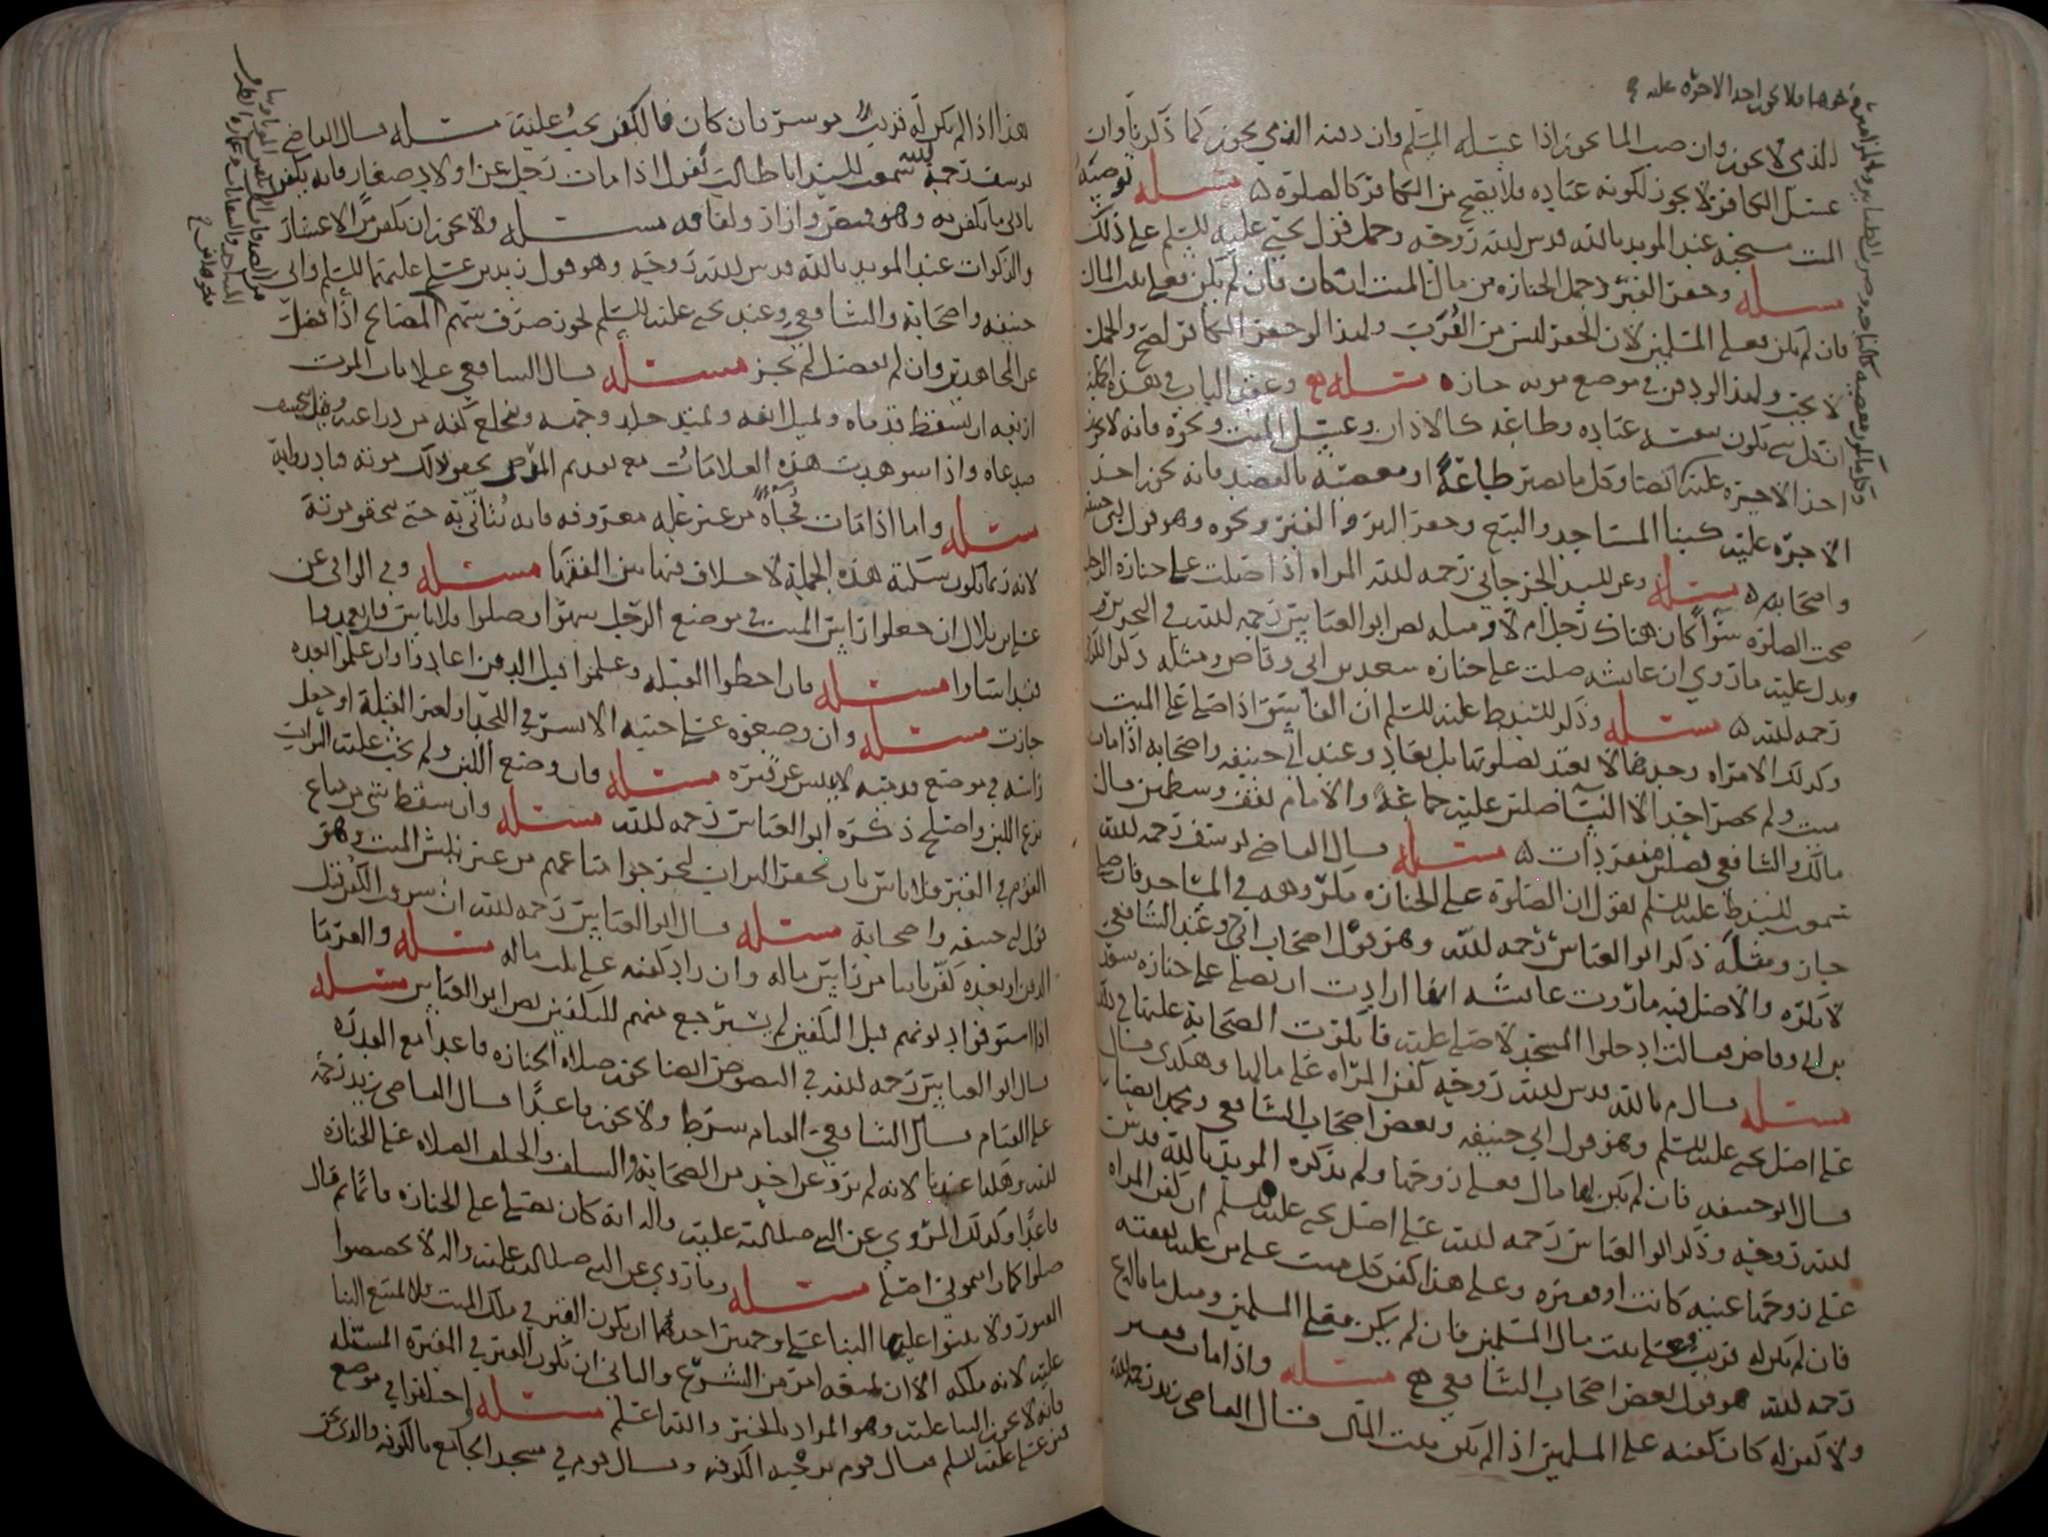 الذمي لا يجوز وان صب الما يجوز اذا غسله المسلم وان دفنه الذمي يجوز كما ذكرنا وان
غسل الكافر لا يجوز لكونه عباده فلا يصح من الكافر كالصلوة مسئله توصيه
الميت صحيحه عند المويد بالله قدس الله روحه وحمل قول يحيى عليه السلم على ذلك
مسئله وحفر القبر وحمل الجنازه من مال الميت ان كان فان لم يكن فعلى بيت المال
فان لم يكن فعلى المسلمين لان الحفر ليس من القرب ولهذا لو حفر الكافر لصح والحمل
لا يجب ولهذا لو دفن في موضع موته جازه مسئله وعقد الباب في هذه الجمله
ان كل شي يكون عباده وطاعه كالاذان وغسل الميت ونحوه فانه لا يجوز
اخذ الاجره عليه وكل ما يصير طاعة او معصيه بالقصد فانه يجوز اخذ
الاجره عليه كبنا المساجد والبيع وحفر البير والقبر ونحوه وهو قول ابي حنيفه
واصحابه مسئله وعن السيد الجرجاني رحمه الله المراه اذا صلت على جنازه الرجل
صحت الصلوة سوا كان هناك رجل ام لا ومثله نص ابو العباس رحمه الله في
ويدل عليه ما روي ان عايشه صلت على جنازه سعد بن ابي وقاص ومثله ذكر
رحمه الله مسئله وذكر السيد ط عليه السلم ان الفاسق اذا صلى على الميت
وكذلك الامراه وحدها لا يعتد بصلوتها بل يعاد وعند ابي حنيفه واصحابه اذا مات
ميت ولم يحضر احد الا النسا صلين عليه جماعة والامام تقف وسطهن قال
مالك والشافعي يصلين منفردات مسئله قال القاضي يوسف رحمه الله
سمعت السيد ط عليه السلم يقول ان الصلوة على الجنازه مكروهه في المساجد فان صلى
جاز ومثله ذكر ابو العباس رحمه الله وهو قول اصحاب ابي ح وعند الشافعي
لا يكره والاصل فيه ما روت عايشه انها ارادت ان تصلي على جنازه سعد
بن ابي وقاص فقالت ادخلوا المسجد لاصلي عليه فانكرت الصحابة عليها في ذلك
مسئله قال م بالله قدس الله روحه كفن المراه على مالها وهكذى قال
على اصل يحيى عليه السلم وهو قول ابي حنيفه وبعض اصحاب الشافعي ومحمد ايضا
قال ابو حنيفه فان لم يكن لها مال فعلى زوجها ولم يذكره المويد بالله قدس
الله روحه وذكر ابو العباس رحمه الله على اصل يحيى عليه السلم ان كفن المراه
على زوجها غنيه كانت او فقيره وعلى هذا كفن كل ميت على من عليه نفقته
فان لم يكن له قريب فعلى بيت مال المسلمين فان لم يكن فعلى المسلمين ومثل ما قال ع
رحمه الله هو قول بعض اصحاب الشافعي مسئله واذا مات فقير
ولا كفن له كان كفنه على المسلمين اذا لم يكن بيت المال فقال القاضي زيد رحمه الله
هذا اذا لم يكن له قريب موسر فان كان فالكفن يجب عليه مسئله قال القاضي
يوسف رحمه الله سمعت السيد ابا طالب يقول اذا مات رجل عن اولاد صغار فانه يكفن
بادنى ما يكفن به وهو قميص وازار ولفافه مسئله ولا يجوز ان يكفن من الاعشار
والزكوات عند المويد بالله قدس الله روحه وهو قول زيد بن علي عليهما السلم وابي
حنيفه واصحابه والشافعي وعند يحيى عليه السلم يجوز صرف سهم المصالح اذا فضل
عن المجاهدين وان لم يفضل لم يجز مسئله قال الشافعي علامات الموت
اربعه ان تسقط قدماه ويميل انفه وتمتد جلده وجهه وينخلع كفه من ذراعيه
صدغاه واذا شوهدت هذه العلامات مع تقدم المرض
مسئله واما اذا مات فجأة من غير عله معروفه فانه يتأنى به حتى يتحقق موته
لانه ربما تكون سكتة هذه الجملة لا خلاف فيها بين الفقها مسئله وفي الوافي عن
علي بن بلال ان جعلوا راس الميت في موضع الرجل سهوا وصلوا فلا باس فان تعمدوا
فقد اساوا مسئله فان اخطوا القبله وعلموا قبل الدفن اعادوا وان علموا بعده
جازت مسئله وان وضعوه على جنبه الايسر في اللحد او لغير القبلة او جعل
راسه في موضع قدميه لا ينبش عن قبره مسئله فان وضع اللبن ولم يحث عليه التراب
نزع اللبن واصلح ذكره ابو العباس رحمه الله مسئله وان سقط شي من متاع
القوم في القبر فلا باس بان يحفر التراب ليخرجوا متاعهم من غير نبش الميت وهو
قول ابي حنيفه واصحابه مسئله قال ابو العباس رحمه الله ان سرق الكفن قبل
الدفن او بعده كفن ثانيا من راس ماله وان زاد كفنه على ثلث ماله مسئله والغرما
اذا استوفوا ديونهم قبل التكفين لم يسترجع منهم للتكفين نص ابو العباس مسئله
قال ابو العباس رحمه الله في النصوص ايضا يجوز صلاة الجنازه قاعدا مع القدره
على القيام قال الشافعي القيام شرط ولا يجوز قاعدا قال القاضي زيد رحمه
الله وهكذا عندنا لانه لم يرو عن احد من الصحابة والسلف والخلف الصلاه على الجنازه
قاعدا وكذلك المروي عن النبي صلى الله عليه واله انه كان يصلي على الجنازه قائما ثم قال
صلوا كما رايتموني اصلي مسئله وما روي عن النبي صلى الله عليه واله لا تجصصوا
القبور ولا تبنوا عليها البنا على وجهين احدهما ان يكون القبر في ملك الميت فلا يمنع البنا
عليه لانه ملكه الا ان يمنعه امر من الشرع والثاني ان يكون القبر في المقبرة المسبله
فانه لا يجوز البنا عليه وهو المراد بالخبر والله اعلم مسئله واختلفوا في موضع
قبر علي عليه السلم فقال قوم برحبه الكوفه وقال قوم في مسجد الجامع بالكوفه والذي